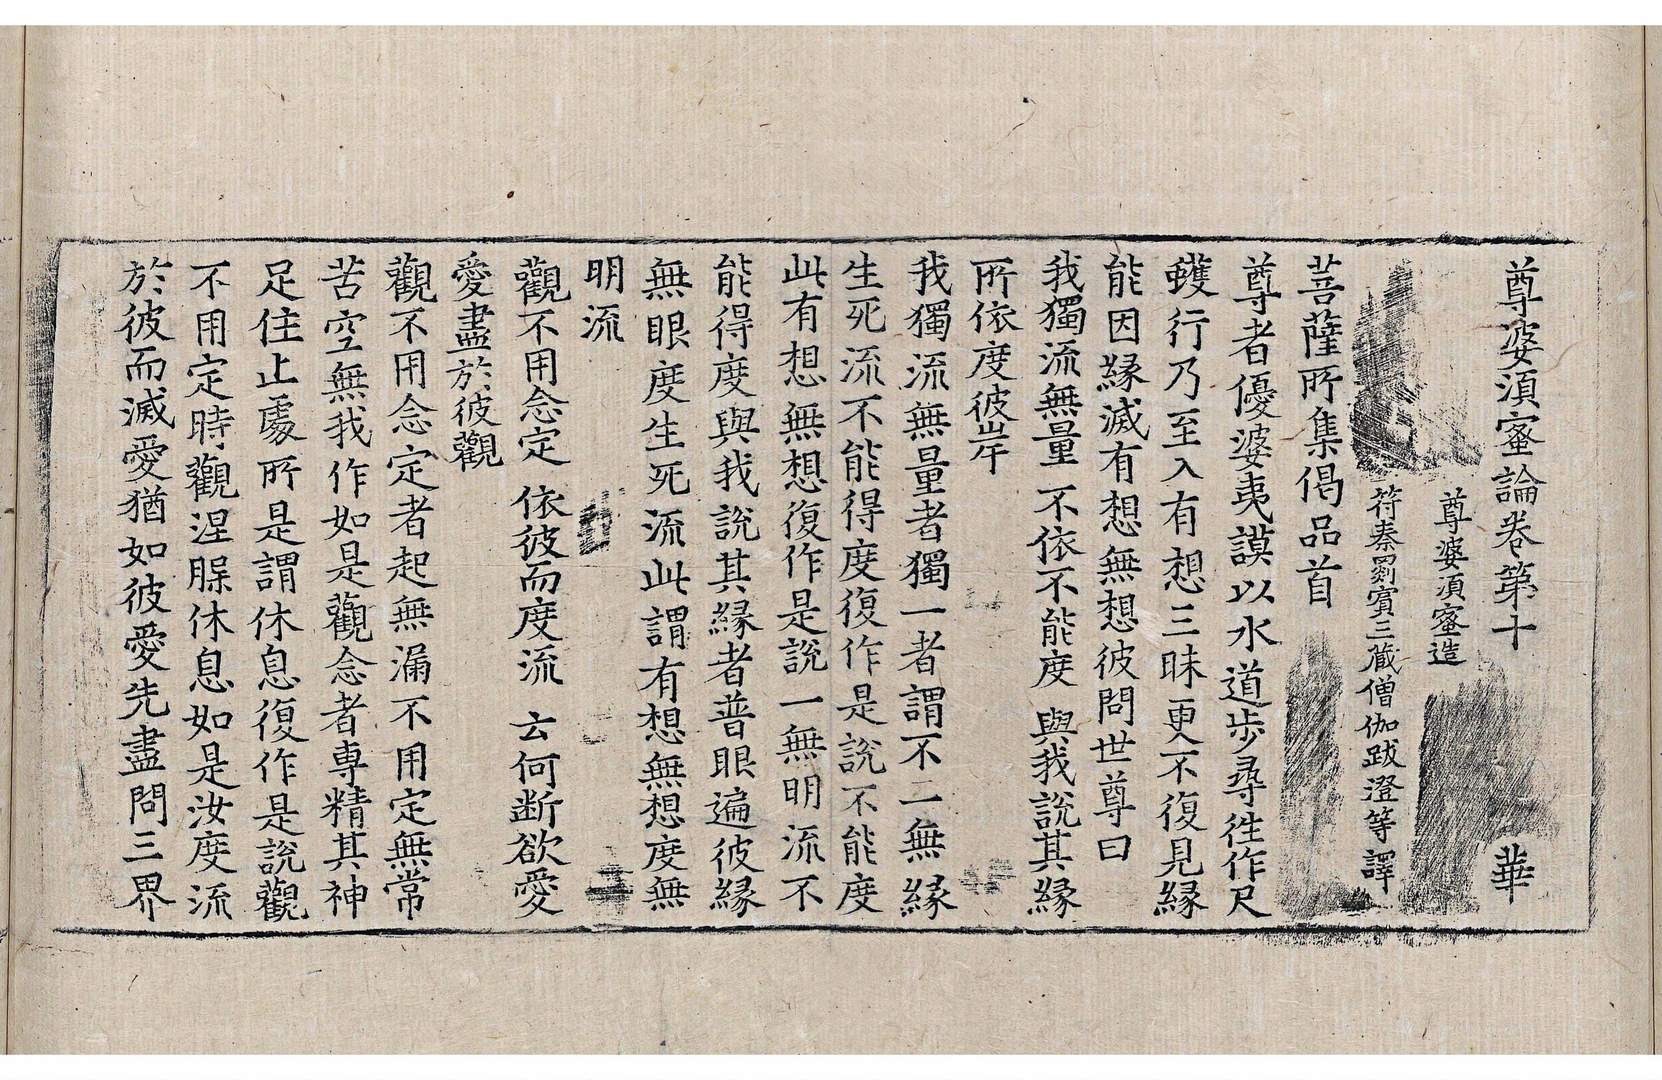 尊婆須蜜論卷第十　華
尊婆須蜜造
符秦罽賓三藏僧伽跋澄等譯
菩薩所集偈品首
尊者優婆夷謨以水道步尋徃作尺
蠖行乃至入有想三昧更不復見縁
能因縁滅有想無想彼問世尊曰
我獨流無量　不依不能度　與我說其縁
所依度彼岸
我獨流無量者獨一者謂不二無縁
生死流不能得度復作是說不能度
此有想無想復作是說一無明流不
能得度與我說其縁者普眼遍彼縁
無眼度生死流此謂有想無想度無
明流
觀不用念定　依彼而度流　云何断欲愛
愛盡於彼觀
觀不用念定者起無漏不用定無常
苦空無我作如是觀念者専精其神
足住止處所是謂休息復作是說觀
不用定時觀涅槃休息如是汝度流
於彼而滅愛猶如彼愛先盡問三界